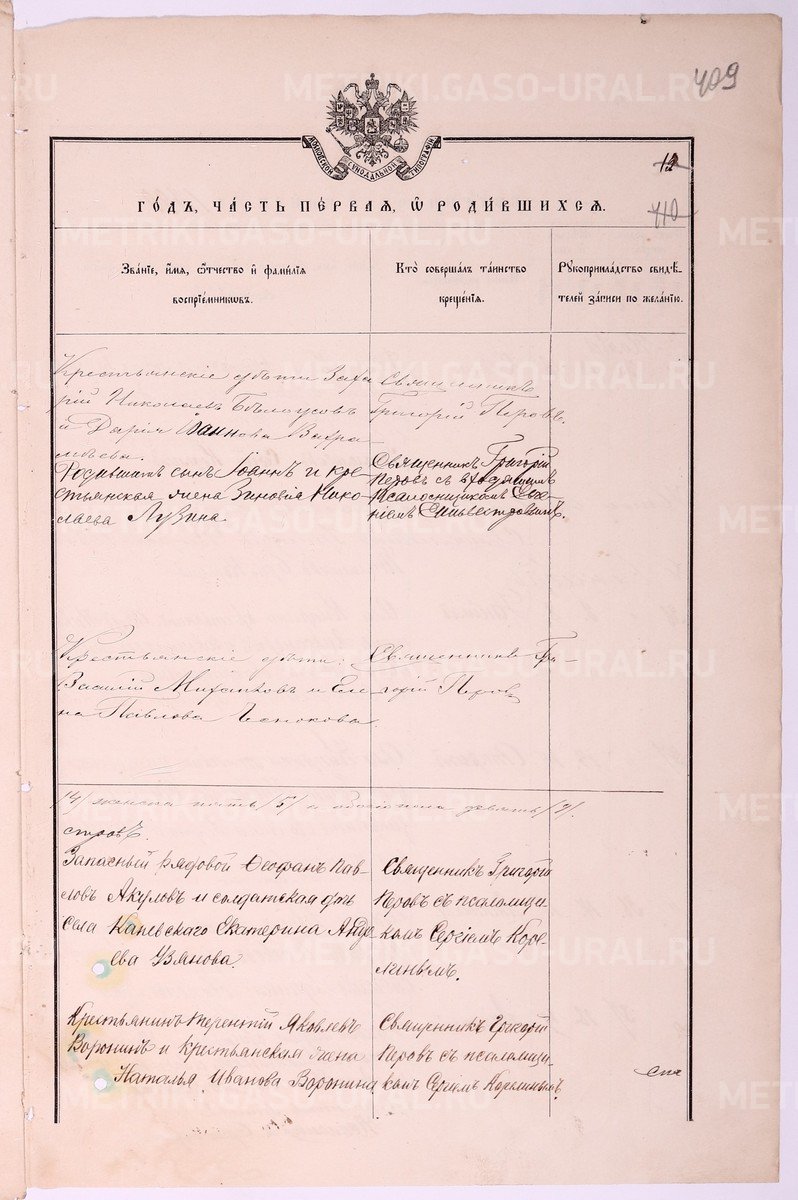 409
12
410
МОСКОВСКОЙ СѴНОДАЛЬНОЙ ТИПОГРАФІИ
ГО́ДЪ, ЧА́СТЬ ПЕ́РВАЯ, Ѡ҆ РОДИ́ВШИХСЯ.
Зва́нїе, и҆́мя, ѻ҆́тчество и҆ фамі́лїя
воспрїе́мникѡвъ.
Кто̀ соверша́лъ та́инство
креще́нїя.
Рꙋкоприкла́дство свидѣ́-
телей за́писи по жела́нїю.
Крестьянскіе дѣти Заха
рій Николаевъ Бѣлоусовъ
и Дарія Іаннова Вахра
мѣева.
Священникъ
Григорій Перовъ.
Родившаго сынъ Іоаннъ и кре-
стьянская жена Зиновія Нико-
лаева Лузина.
Священникъ Григорій
Перовъ съ
псаломщикомъ
Сильвестровымъ.
Крестьянскіе дѣти:
Василій и Еле
на Павлова Чеснокова.
Священникъ Гри-
горій Перовъ
/4/ женска пять /5/ а обоего пола девять /9/.
Запасный рядовой Ѳеофанъ Пав-
ловъ Акуловъ и солдатская дочь
села Екатерина Андре
ева Узянова.
Священникъ Григорій
Перовъ съ псаломщи
комъ Сергіемъ Коре-
линымъ.
Крестьянинъ Терентій Яковлевъ
Воронинъ и крестьянская жена
Наталья Иванова Воронина
Священникъ Григорій
Перовъ съ псаломщи
комъ Сергіемъ Корелинымъ.
METRIKI.GASO-URAL.RU